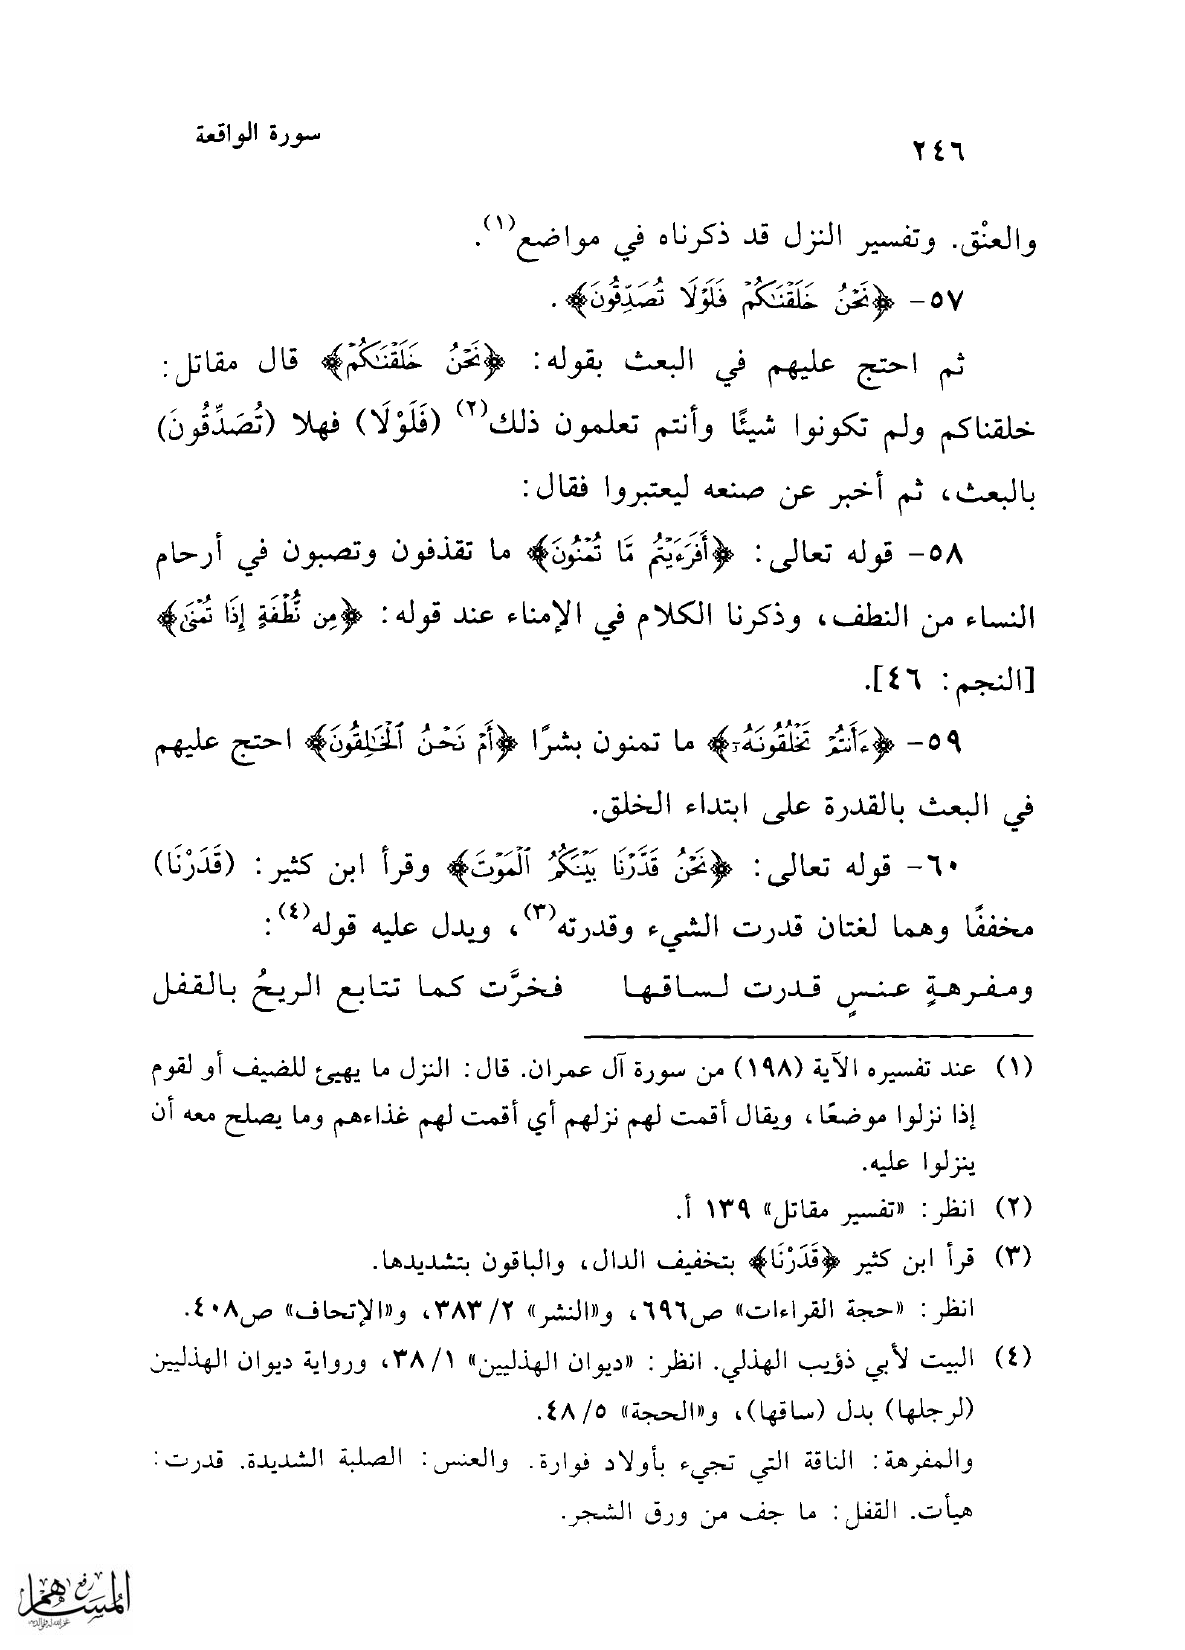 ٢٤٦
سورة الواقعة
والعنْق. وتفسير النزل قد ذكرناه في مواضع(١).
٥٧- ﴿نَحْنُ خَلَقْنَاكُمْ فَلَوْلَا تُصَدِّقُونَ﴾.
ثم احتج عليهم في البعث بقوله: ﴿نَحْنُ خَلَقْنَاكُمْ﴾ قال مقاتل:
خلقناكم ولم تكونوا شيئًا وأنتم تعلمون ذلك(٢) (فَلَوْلَا) فهلا (تُصَدِّقُونَ)
بالبعث، ثم أخبر عن صنعه ليعتبروا فقال:
٥٨- قوله تعالى: ﴿أَفَرَءَيْتُم مَّا تُمْنُونَ﴾ ما تقذفون وتصبون في أرحام
النساء من النطف، وذكرنا الكلام في الإمناء عند قوله: ﴿مِن نُّطْفَةٍ إِذَا تُمْنَى﴾
[النجم: ٤٦].
٥٩- ﴿ءَأَنتُمْ تَخْلُقُونَهُۥٓ﴾ ما تمنون بشرًا ﴿أَمْ نَحْنُ ٱلْخَالِقُونَ﴾ احتج عليهم
في البعث بالقدرة على ابتداء الخلق.
٦٠- قوله تعالى: ﴿نَحْنُ قَدَّرْنَا بَيْنَكُمُ ٱلْمَوْتَ﴾ وقرأ ابن كثير: (قَدَرْنَا)
مخففًا وهما لغتان قدرت الشيء وقدرته(٣)، ويدل عليه قوله(٤):
ومفرهةٍ عنسٍ قدرت لساقها فخرَّت كما تتابع الريحُ بالقفل
(١) عند تفسيره الآية (١٩٨) من سورة آل عمران. قال: النزل ما يهيئ للضيف أو لقوم
إذا نزلوا موضعًا، ويقال أقمت لهم نزلهم أي أقمت لهم غذاءهم وما يصلح معه أن
ينزلوا عليه.
(٢) انظر: «تفسير مقاتل» ١٣٩ أ.
(٣) قرأ ابن كثير ﴿قَدَرْنَا﴾ بتخفيف الدال، والباقون بتشديدها.
انظر: «حجة القراءات» ص٦٩٦، و«النشر» ٢/ ٣٨٣، و«الإتحاف» ص٤٠٨.
(٤) البيت لأبي ذؤيب الهذلي. انظر: «ديوان الهذليين» ١/ ٣٨، ورواية ديوان الهذليين
(لرجلها) بدل (ساقها)، و«الحجة» ٥/ ٤٨.
والمفرهة: الناقة التي تجيء بأولاد فوارة. والعنس: الصلبة الشديدة. قدرت:
هيأت. القفل: ما جف من ورق الشجر.